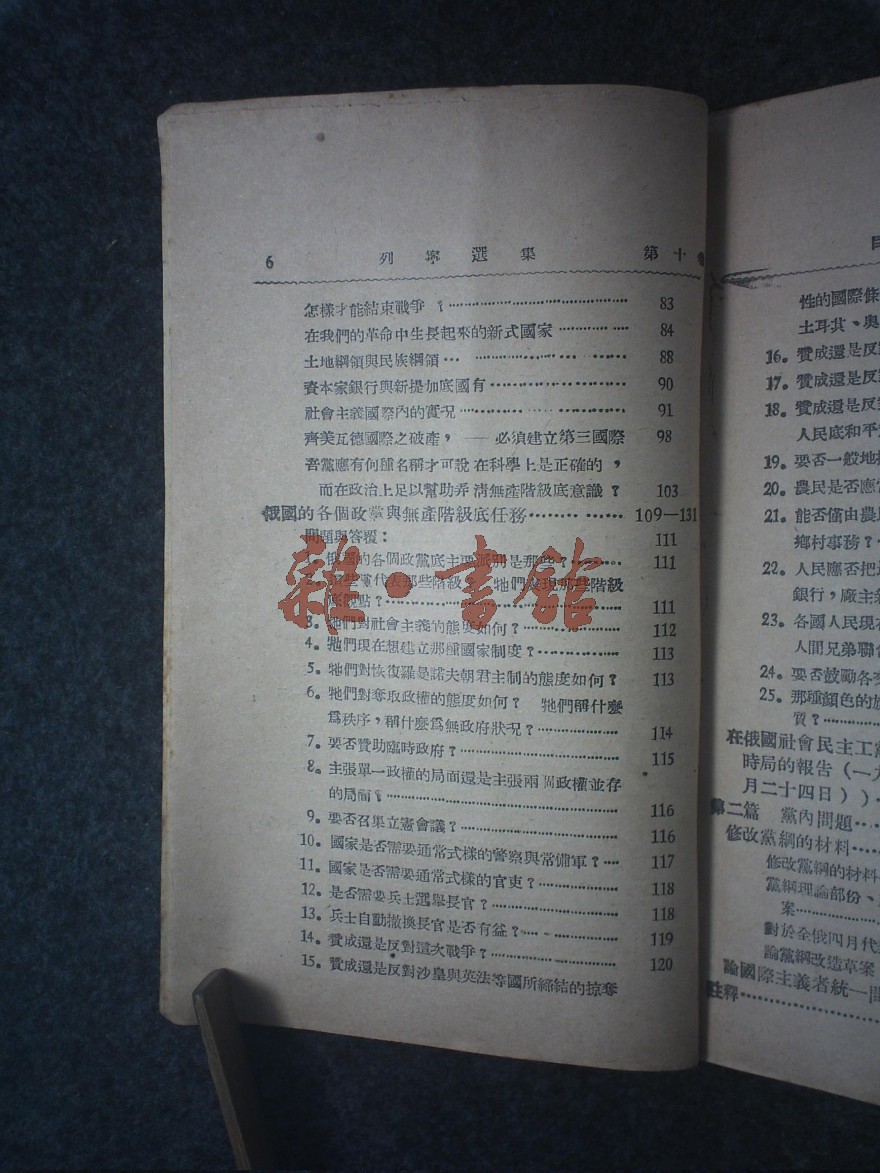 6 列寧選集 第十
怎樣才能結束戰爭？ 83
在我們的革命中生長起來的新式國家 84
土地綱領與民族綱領 88
資本家銀行與新提加底國有 90
社會主義國際內的實况 91
齊美瓦德國際之破產，—— 必須建立第三國際 98
吾黨應有何種名稱才可說在科學上是正確的，
而在政治上足以幫助弄清無產階級底意識？ 103
俄國的各個政黨與無產階級底任務 109—131
問題與答覆： 111
1。俄國的各個政黨底主要派別是那些？ 111
2。 些黨代表那些階級 牠們 現那些階級
底觀點？ 111
3。牠們對社會主義的態度如何？ 112
4。牠們現在想建立那種國家制度？ 113
5。牠們對恢復羅曼諾夫朝君主制的態度如何？ 113
6。牠們對奪取政權的態度如何？ 牠們稱什麼
爲秩序，稱什麼爲無政府狀况？ 114
7。要否贊助臨時政府？ 115
8。主張單一政權的局面還是主張兩個政權並存
的局面？ 116
9。要否召集立憲會議？ 116
10。國家是否需要通常式樣的警察與常備軍？ 117
11。國家是否需要通常式樣的官吏？ 118
12。是否需要兵士選舉長官？ 118
13。兵士自動撤換長官是否有益？ 119
14。贊成還是反對這次戰爭？ 120
15。贊成還是反對沙皇與英法等國所締結的掠奪
雜·書館
目
性的國際條
土耳其、與
16。贊成還是反
17。贊成還是反
18。贊成還是反
人民底和平
19。要否一般地
20。農民是否應
21。能否僅由農
鄉村事務？
22。人民應否把
銀行，廠主
23。各國人民現
人間兄弟聯
24。要否鼓勵各
25。那種顏色的
質？
在俄國社會民主工黨
時局的報告（一九
月二十四日））
第二篇 黨內問題
修改黨綱的材料
修改黨綱的材料
黨綱理論部份、
案
對於全俄四月代
論黨綱改造草案
論國際主義者統一問
註釋